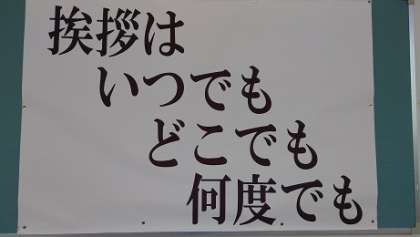 挨拶は
いつでも
どこでも
何度でも